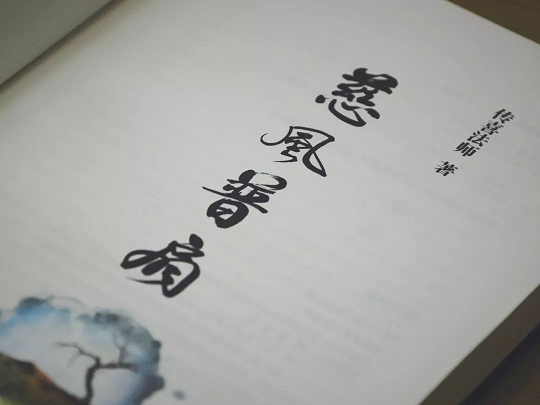 慈風普扇
传喜法师 著